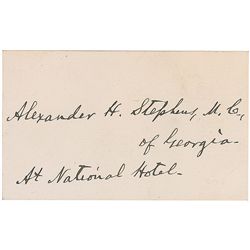 Alexander H. Stephens, M.C.,
of Georgia.
At National Hotel.